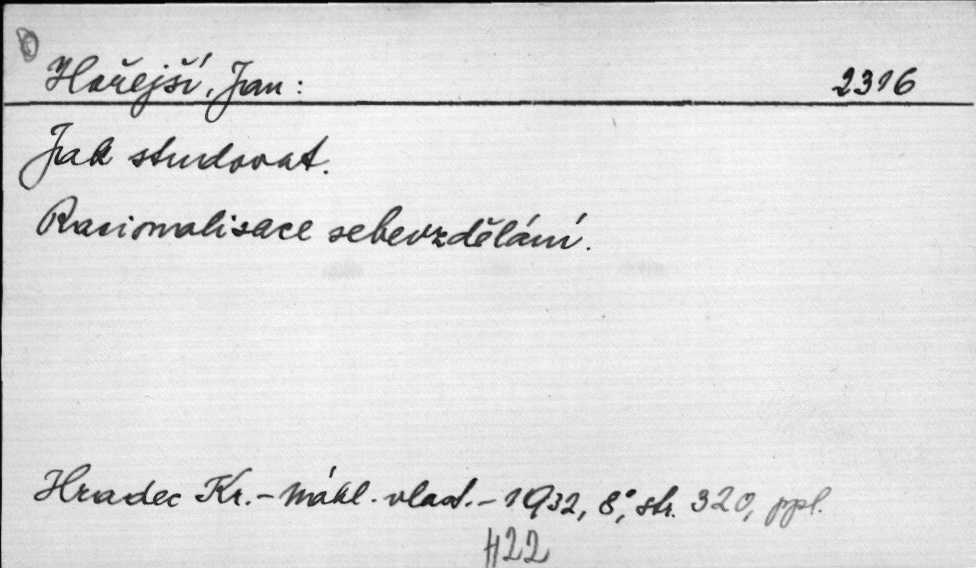 Hořejší, Jan: 2316
Jak studovat.
Racionalisace sebevzdělání.
Hradec Kr. - nákl. vlast. - 1932, 8°, str. 320, ppl.
H22